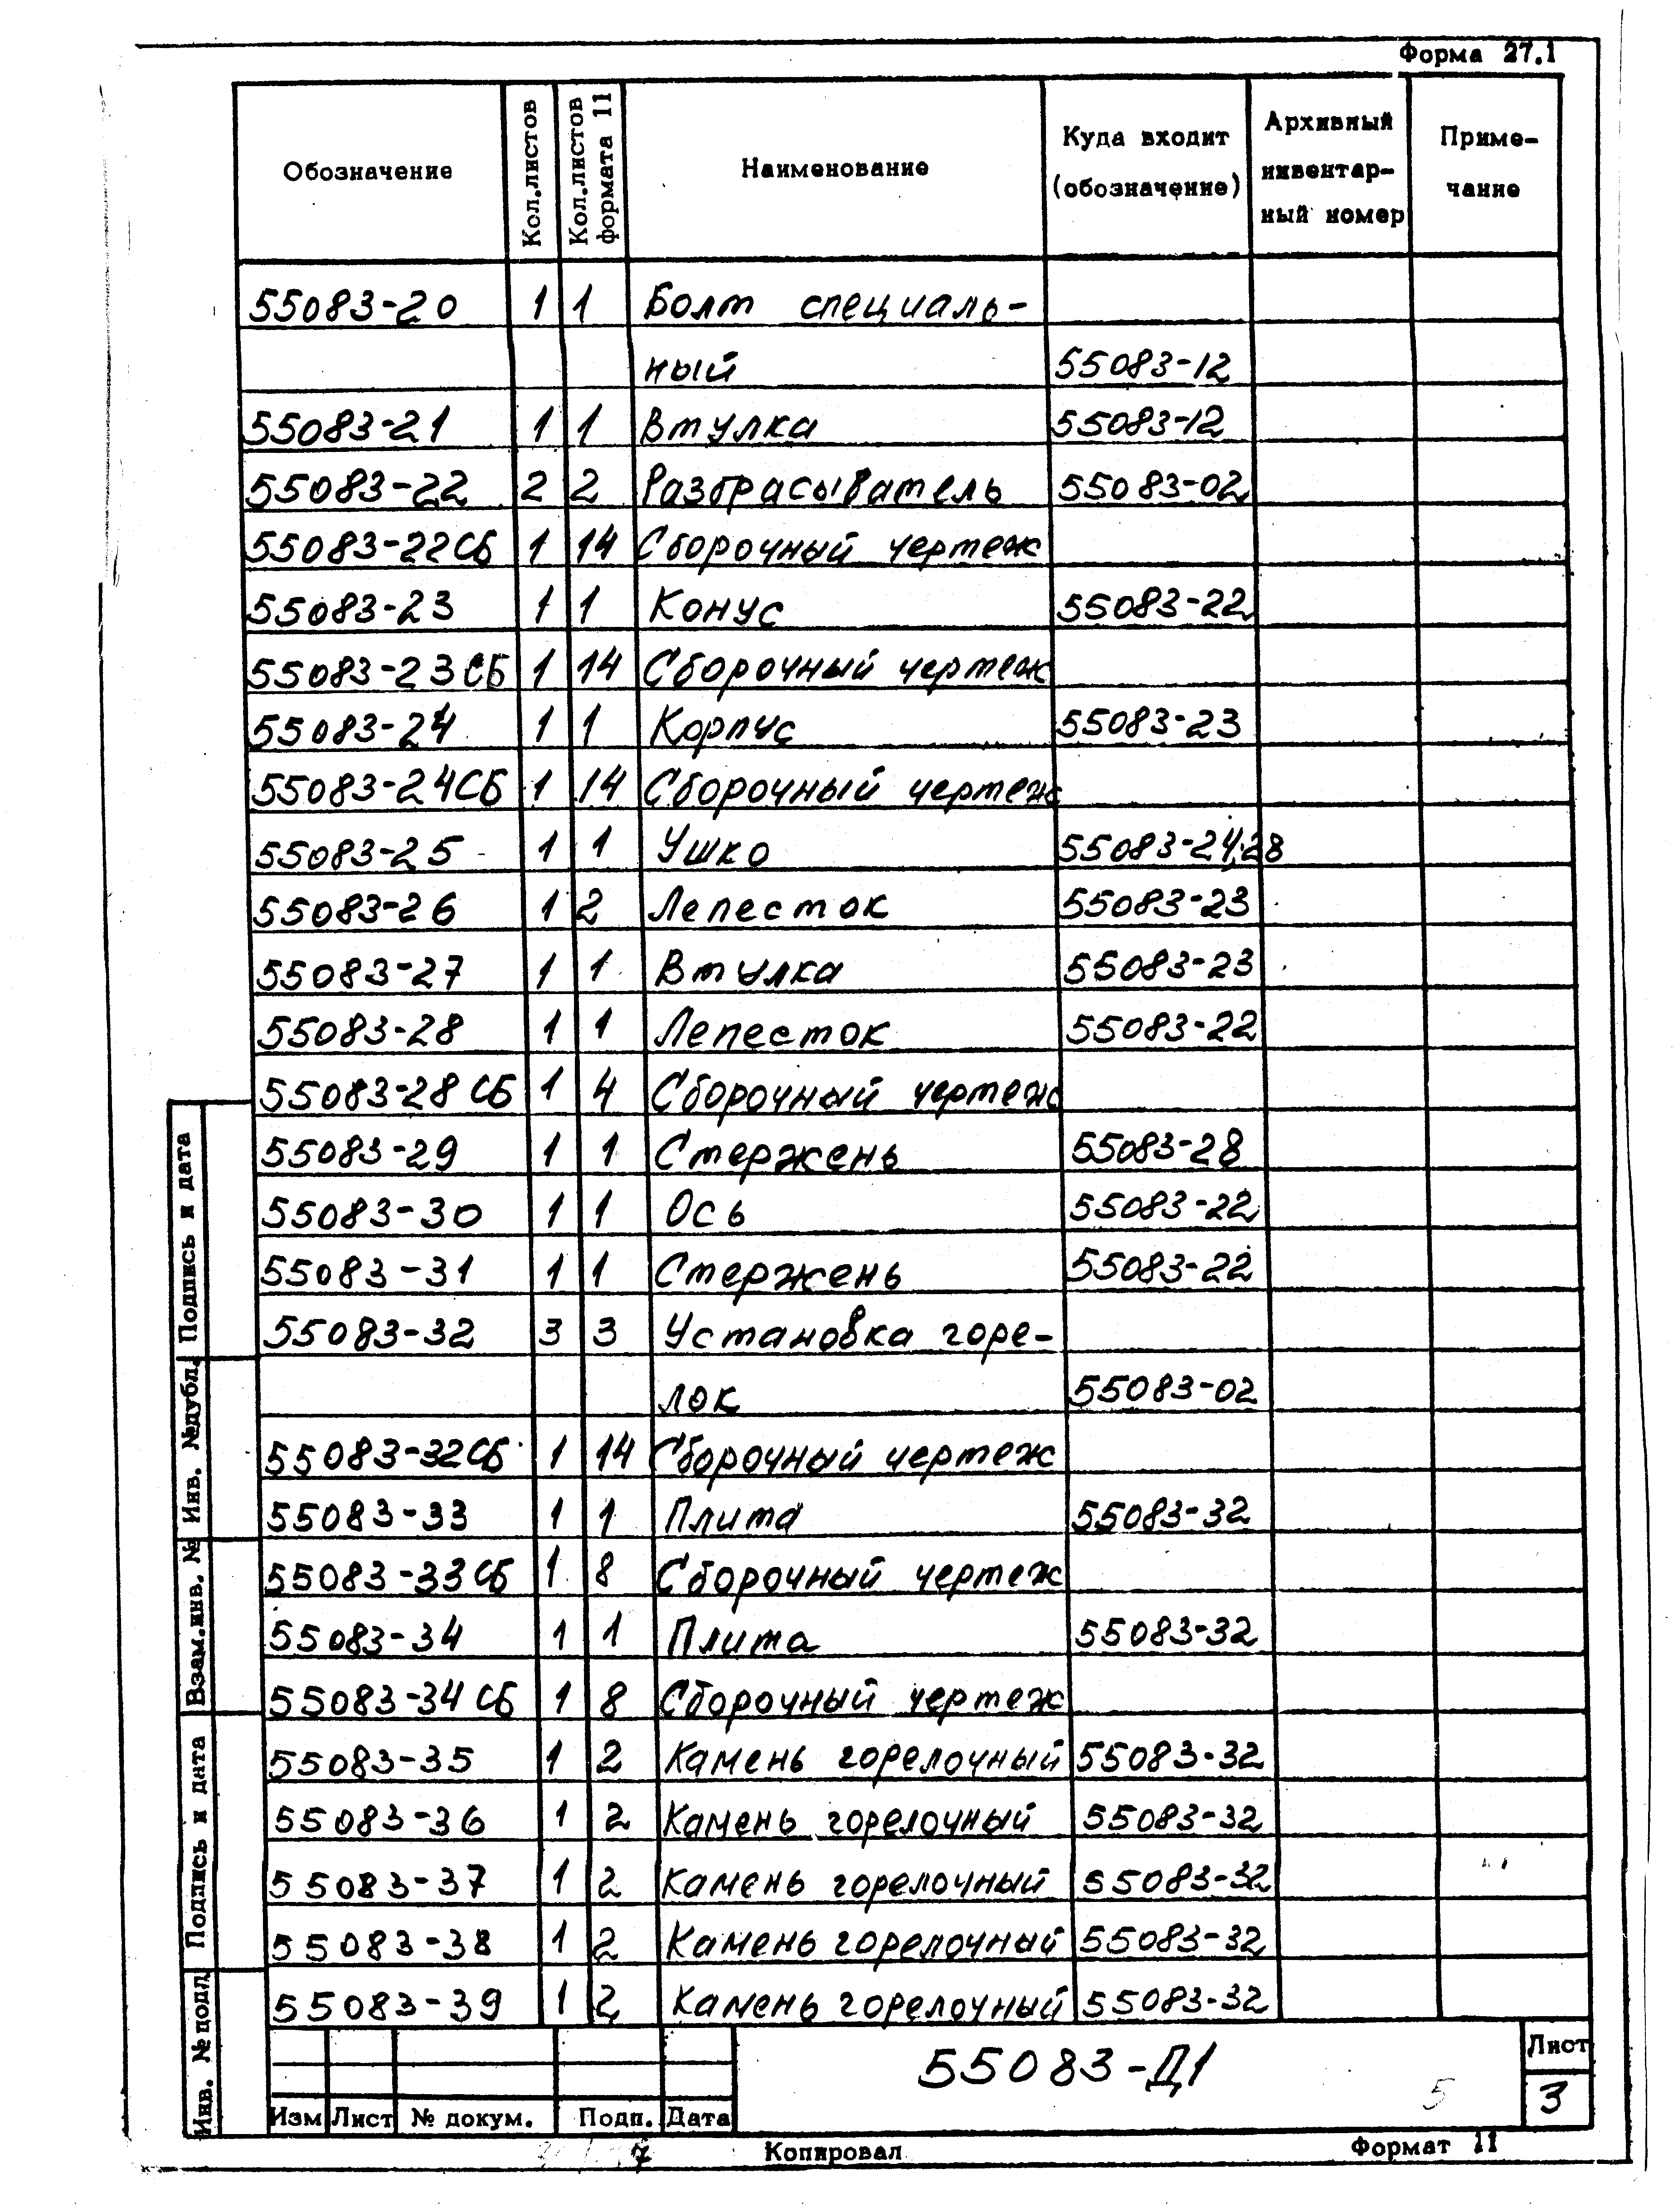 Форма 27.1
Обозначение Кол.листов Кол.листов формата 11 Наименование Куда входит (обозначение) Архивный инвентарный номер Приме-чание
55083-20 1 1 Болт специаль-
ный 55083-12
55083-21 1 1 Втулка 55083-12
55083-22 2 2 Разбрасыватель 55083-02
55083-22СБ 1 14 Сборочный чертеж
55083-23 1 1 Конус 55083-22
55083-23СБ 1 14 Сборочный чертеж
55083-24 1 1 Корпус 55083-23
55083-24СБ 1 14 Сборочный чертеж
55083-25 1 1 Ушко 55083-24,28
55083-26 1 2 Лепесток 55083-23
55083-27 1 1 Втулка 55083-23
55083-28 1 1 Лепесток 55083-22
55083-28СБ 1 4 Сборочный чертеж
55083-29 1 1 Стержень 55083-28
55083-30 1 1 Ось 55083-22
55083-31 1 1 Стержень 55083-22
55083-32 3 3 Установка горе-
лок 55083-02
55083-32СБ 1 14 Сборочный чертеж
55083-33 1 1 Плита 55083-32
55083-33СБ 1 8 Сборочный чертеж
55083-34 1 1 Плита 55083-32
55083-34СБ 1 8 Сборочный чертеж
55083-35 1 2 Камень горелочный 55083-32
55083-36 1 2 Камень горелочный 55083-32
55083-37 1 2 Камень горелочный 55083-32
55083-38 1 2 Камень горелочный 55083-32
55083-39 1 2 Камень горелочный 55083-32
Подпись и дата
Инв. №дубл.
Взам.инв. №
Подпись и дата
Инв. №подл
55083-Д1
Лист
5
3
Изм Лист № докум. Подп. Дата
7
Копировал
Формат 11